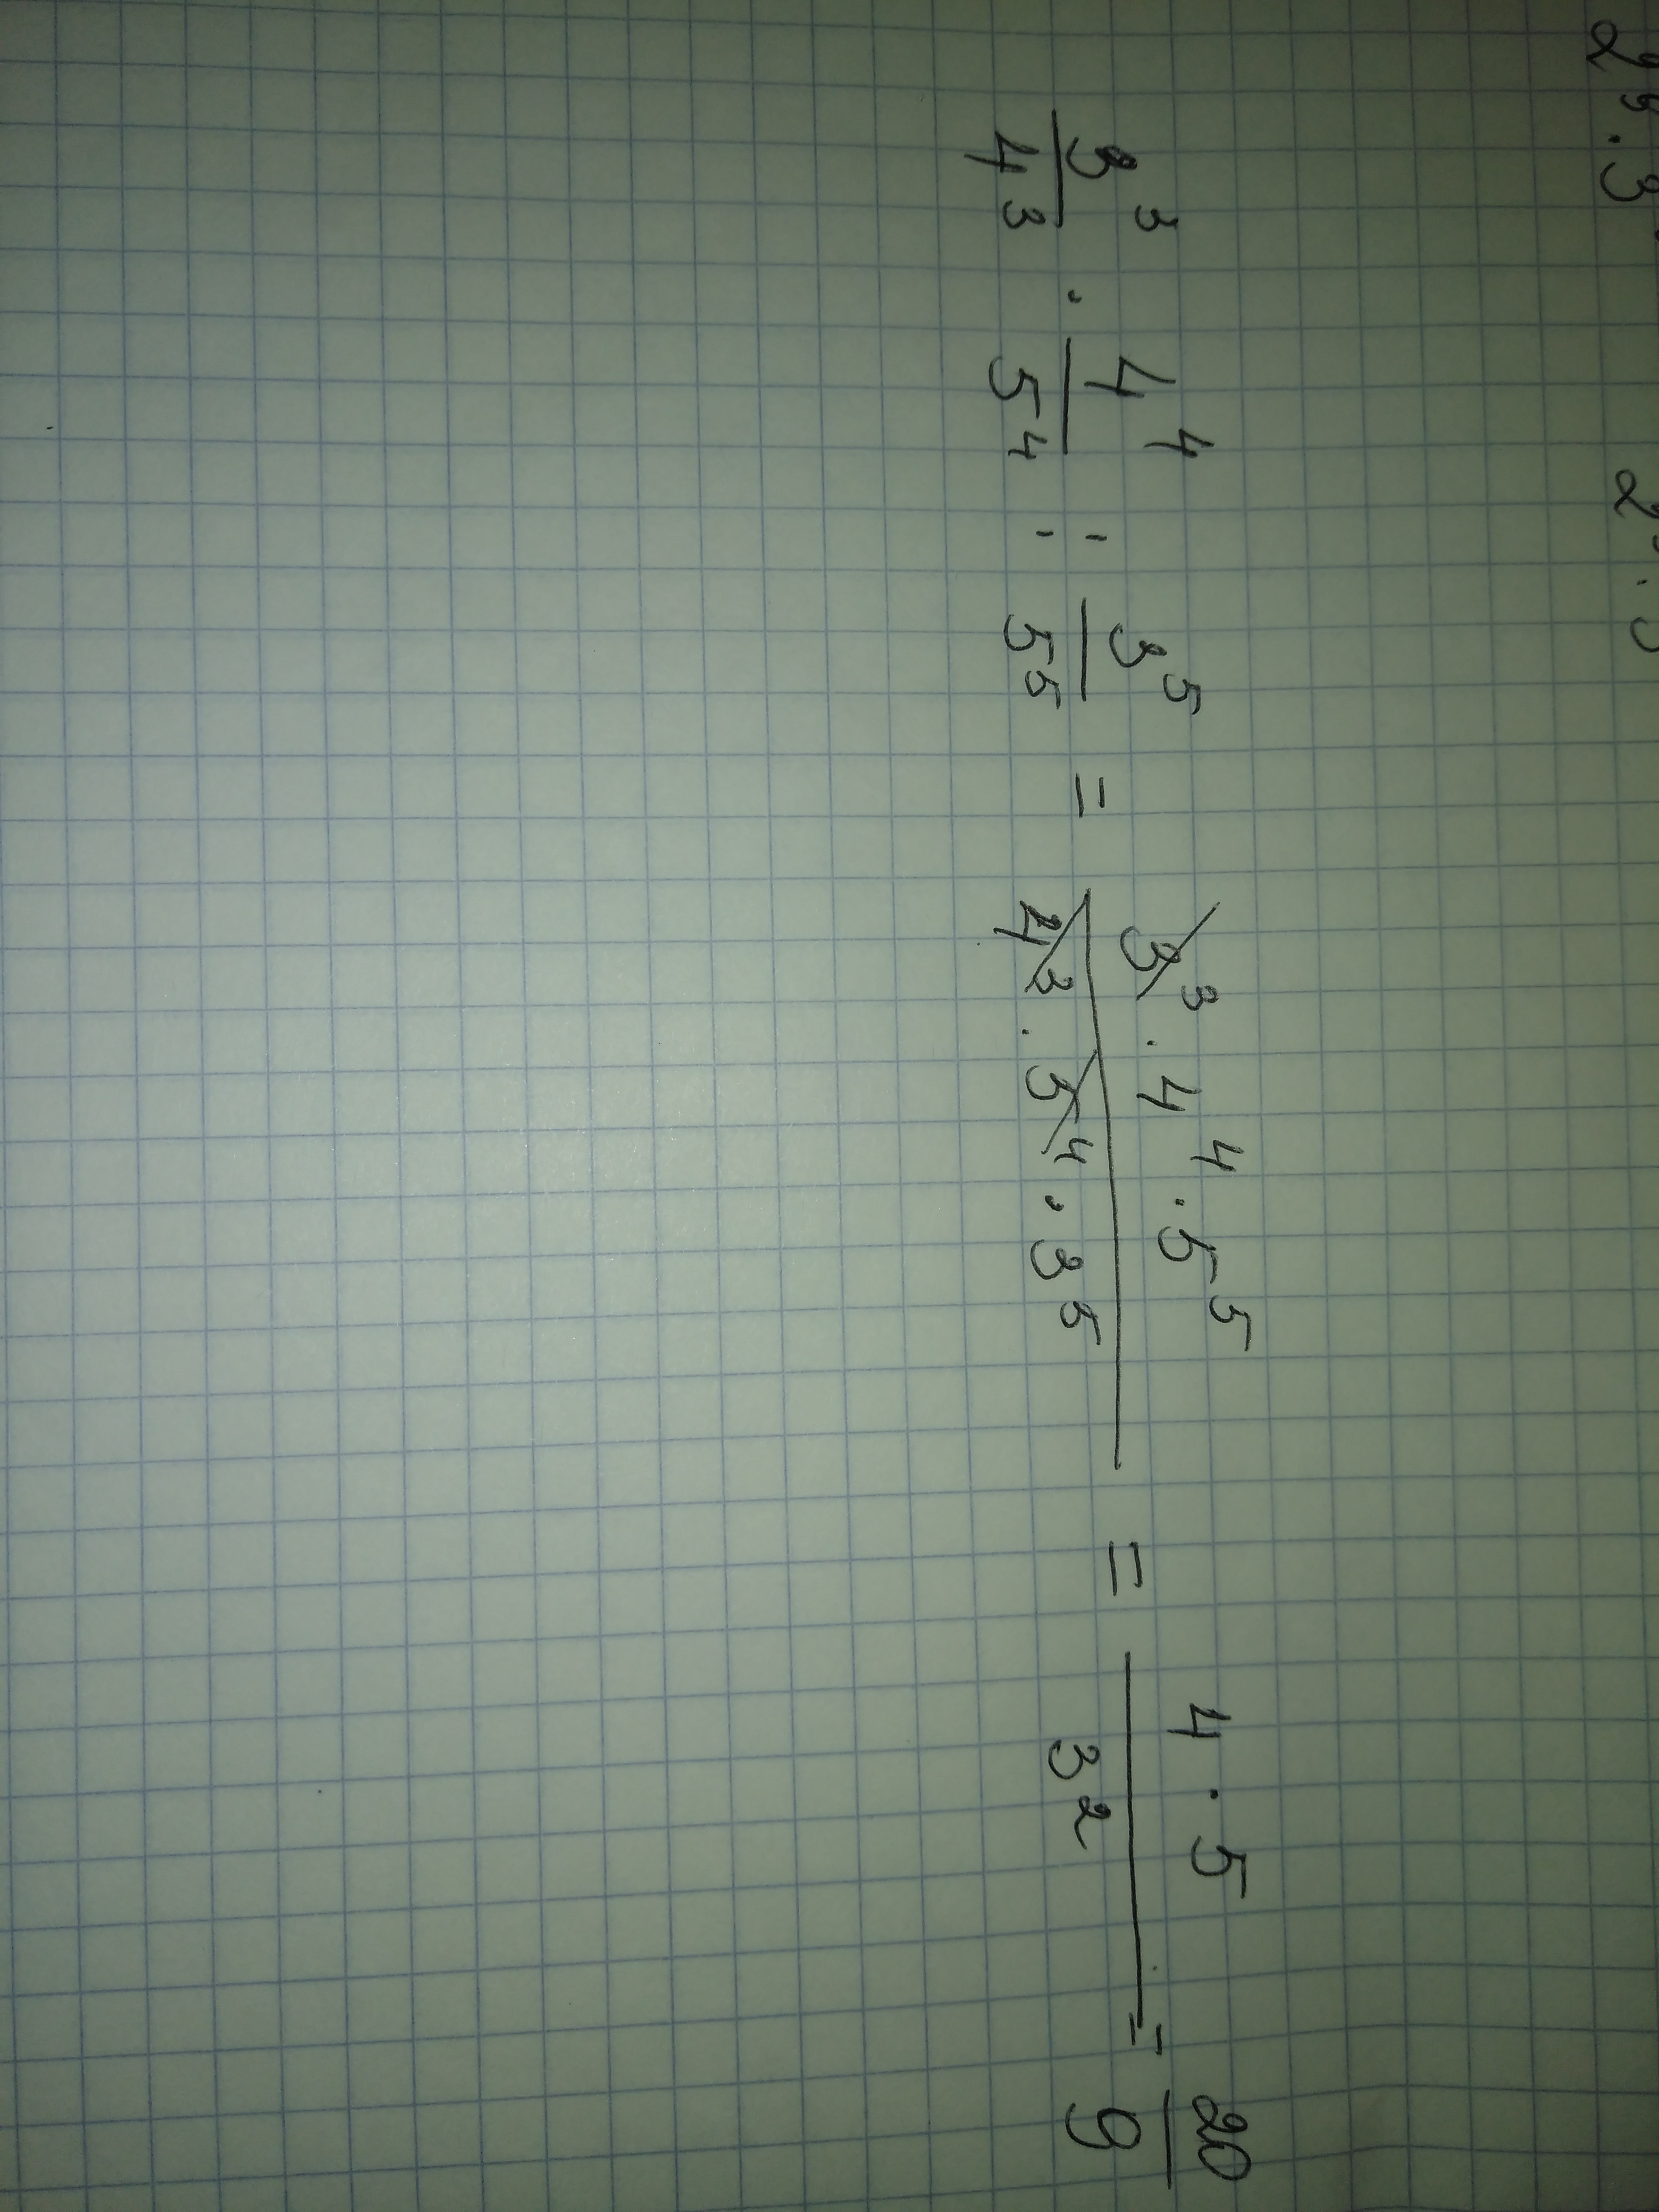 2⁹⁹ · 3 2⁹ · 3
3³/4³ · 4⁴/5⁴ : 3⁵/5⁵ = (3³ · 4⁴ · 5⁵)/(4³ · 5⁴ · 3⁵) = (4 · 5)/3² = 20/9